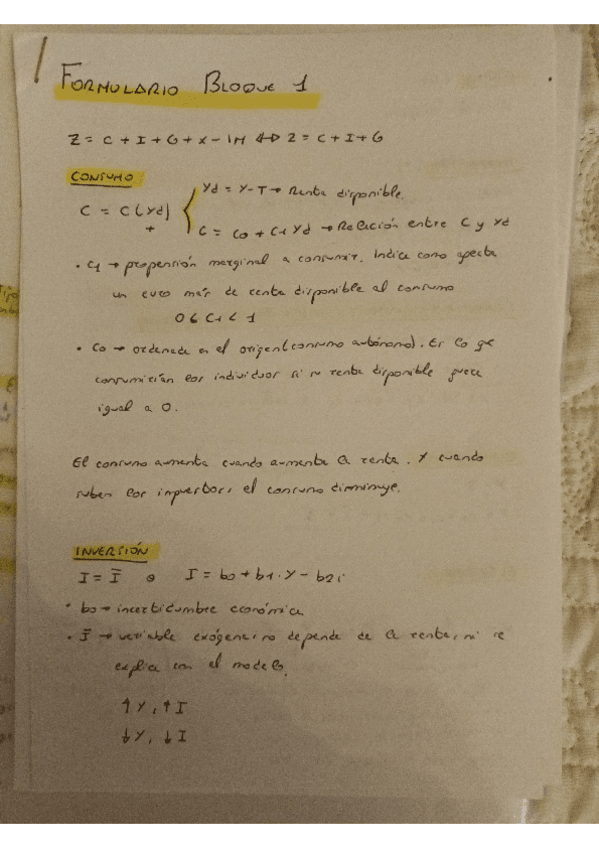 FORMULARIO BLOQUE 1
Z = C + I + G + X - IM ⇔ Z = C + I + G
CONSUMO:
C = C(Yd)
+
Yd = Y-T → Renta disponible.
C = C0 + C1 Yd → Relación entre C y Yd
• C1 → propensión marginal a consumir. Indica como afecta
un euro más de renta disponible al consumo
0 < C1 < 1
• C0 → ordenada en el origen (consumo autónomo). Es lo qe
consumirían los individuos si su renta disponible fuera
igual a 0.
El consumo aumenta cuando aumenta la renta. Y cuando
suben los impuestos, el consumo disminuye.
INVERSIÓN
I = Ī o I = b0 + b1 · Y - b2i
• b0 → incertidumbre económica
• Ī → variable exógena, no depende de la renta, ni se
explica con el modelo.
↑Y, ↑I
↓Y, ↓I